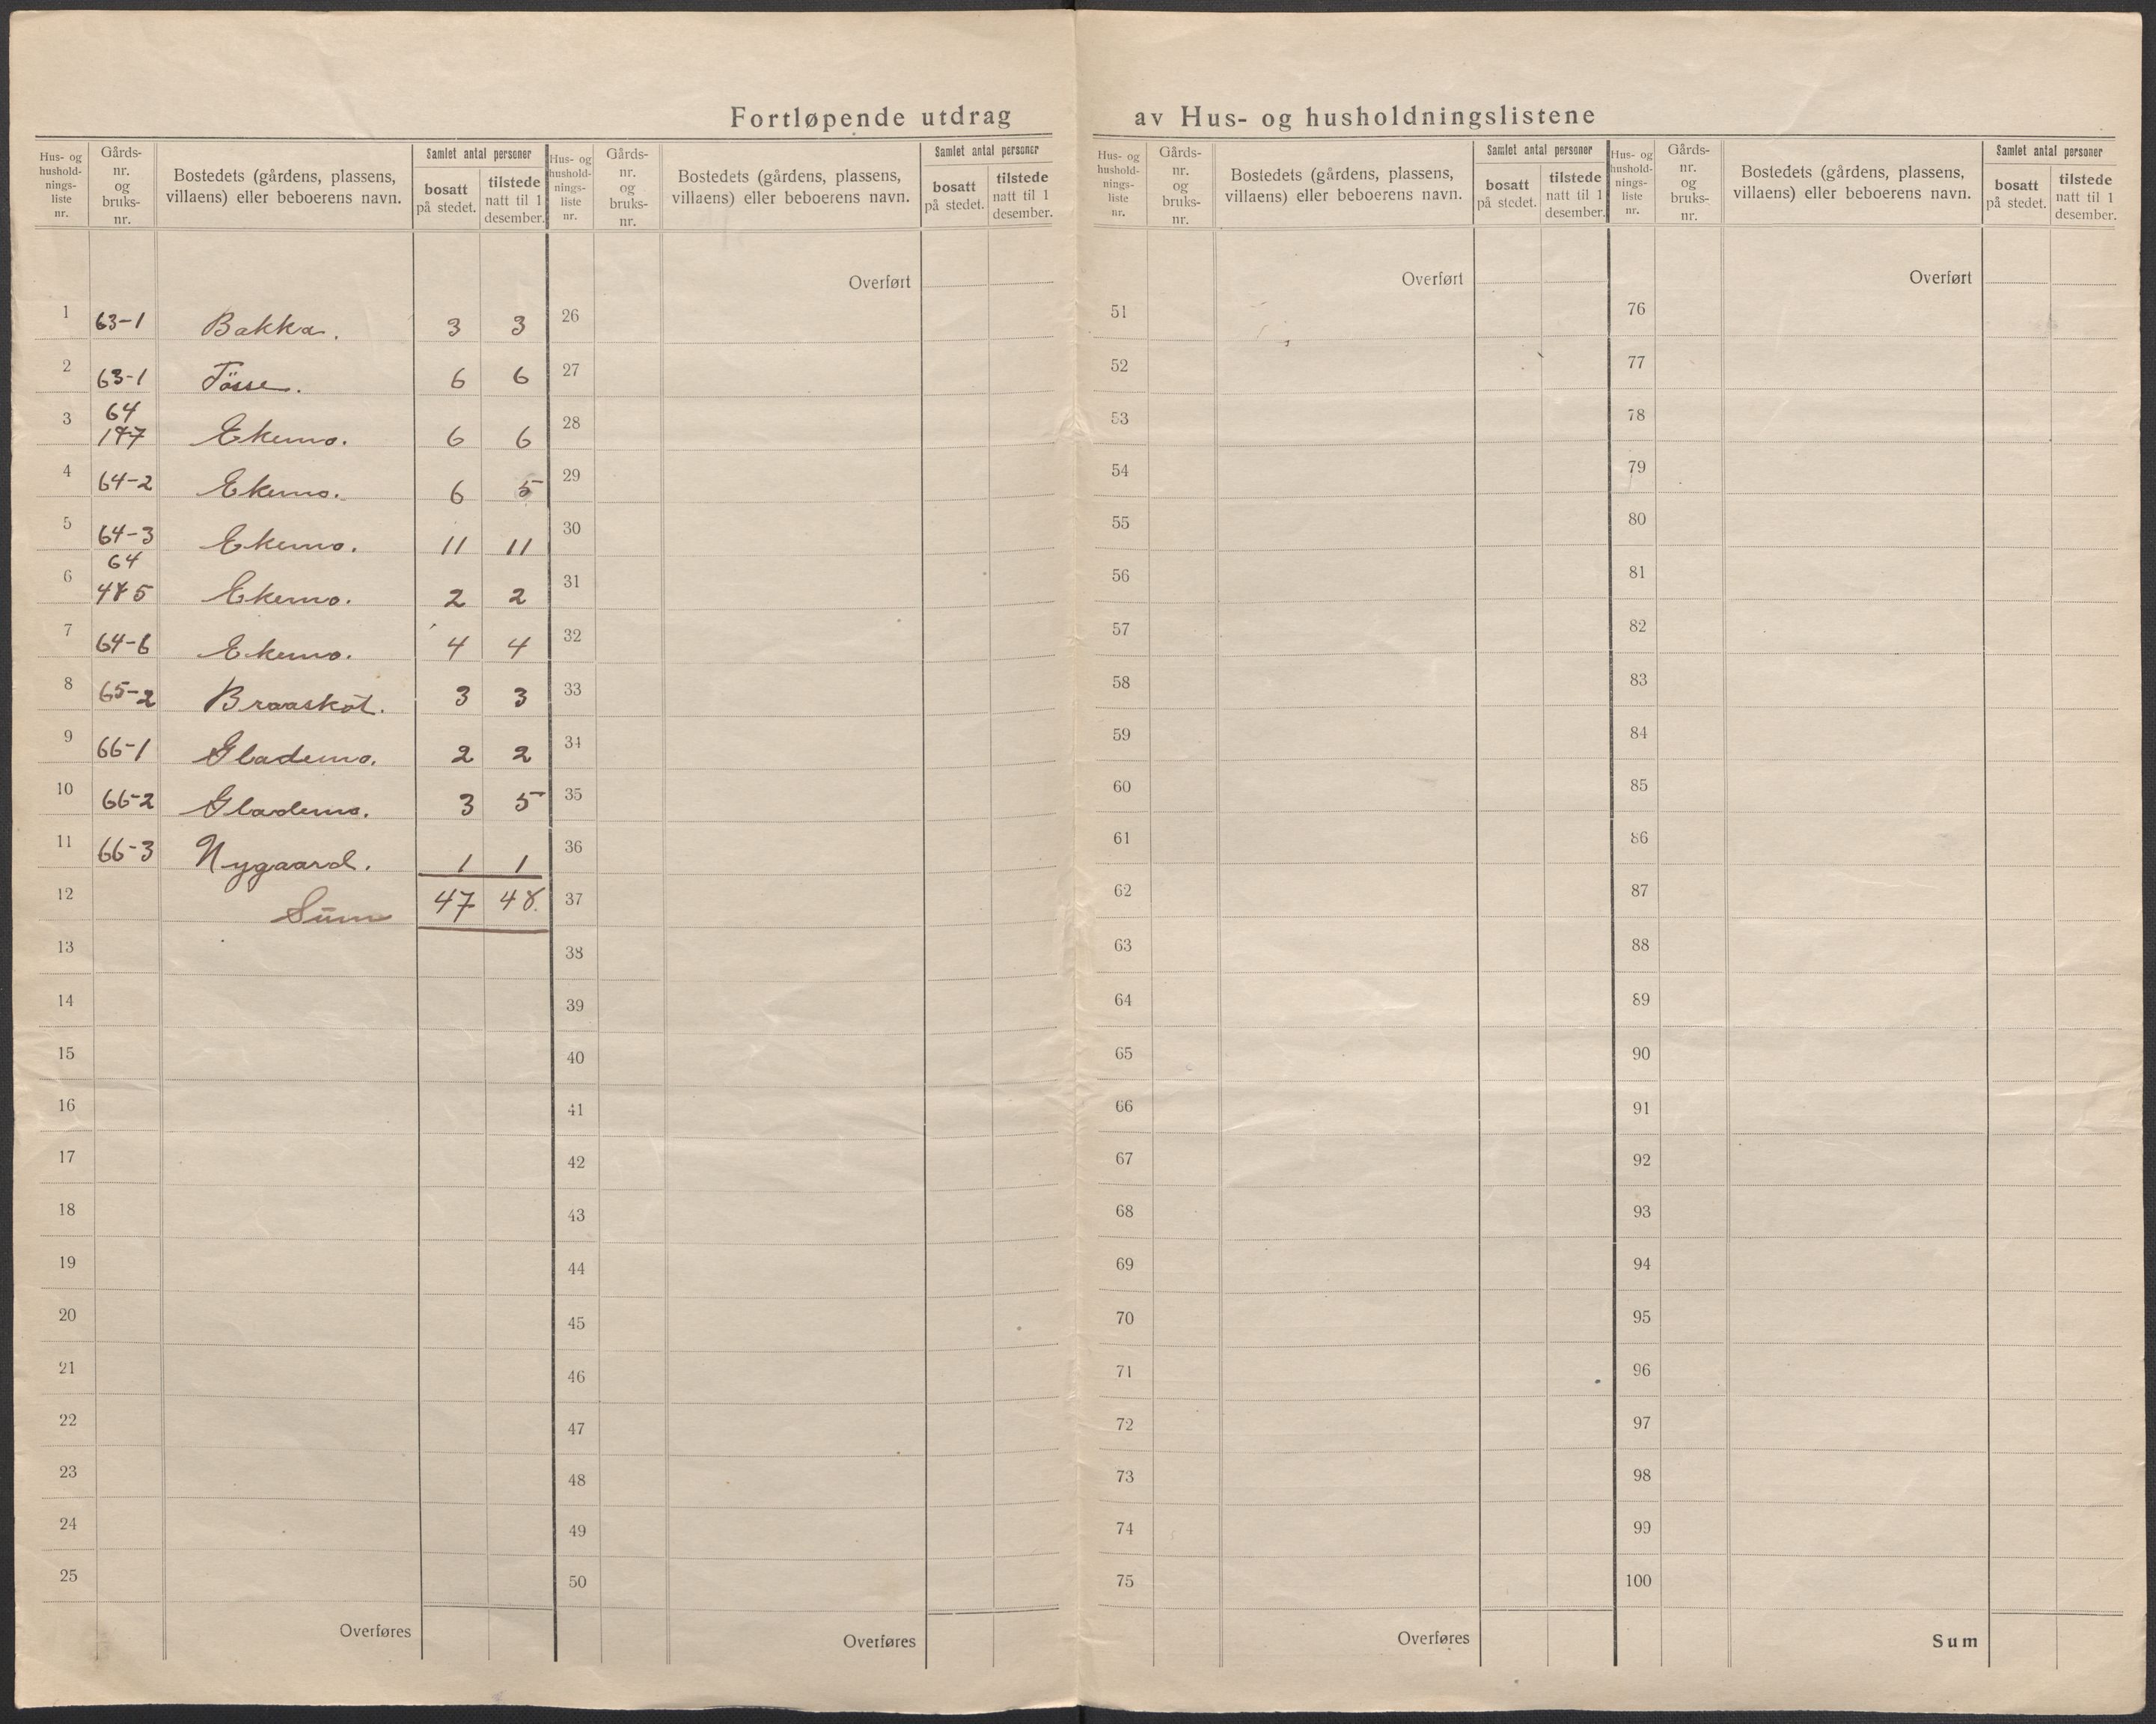 Fortløpende utdrag av Hus- og husholdningslistene
Hus- og hushold- nings- liste nr. | Gårds- nr. og bruks- nr. | Bostedets (gårdens, plassens, villaens) eller beboerens navn. | Samlet antal personer | bosatt på stedet. | tilstede natt til 1 desember.
1 63-1 Bakka. 3 3
2 63-1 Tösse. 6 6
3 64 1+7 Ekemo. 6 6
4 64-2 Ekemo. 6 5
5 64-3 Ekemo. 11 11
6 64 4+5 Ekemo. 2 2
7 64-6 Ekemo. 4 4
8 65-2 Braasköt. 3 3
9 66-1 Glademo. 2 2
10 66-2 Glademo. 3 5
11 66-3 Nygaard. 1 1
12 Sum 47 48.
13
14
15
16
17
18
19
20
21
22
23
24
25
Overføres
Hus- og hushold- nings- liste nr. | Gårds- nr. og bruks- nr. | Bostedets (gårdens, plassens, villaens) eller beboerens navn. | Samlet antal personer | bosatt på stedet. | tilstede natt til 1 desember.
Overført
26
27
28
29
30
31
32
33
34
35
36
37
38
39
40
41
42
43
44
45
46
47
48
49
50
Overføres
Hus- og hushold- nings- liste nr. | Gårds- nr. og bruks- nr. | Bostedets (gårdens, plassens, villaens) eller beboerens navn. | Samlet antal personer | bosatt på stedet. | tilstede natt til 1 desember.
Overført
51
52
53
54
55
56
57
58
59
60
61
62
63
64
65
66
67
68
69
70
71
72
73
74
75
Overføres
Hus- og hushold- nings- liste nr. | Gårds- nr. og bruks- nr. | Bostedets (gårdens, plassens, villaens) eller beboerens navn. | Samlet antal personer | bosatt på stedet. | tilstede natt til 1 desember.
Overført
76
77
78
79
80
81
82
83
84
85
86
87
88
89
90
91
92
93
94
95
96
97
98
99
100
Sum